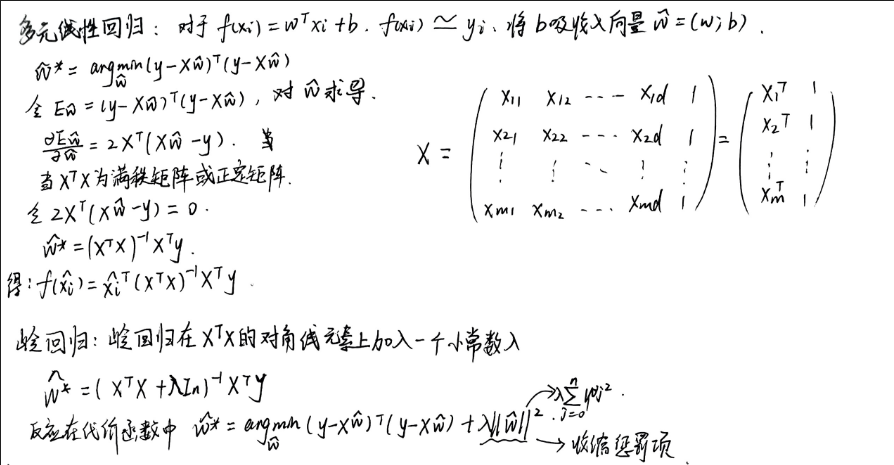 多元线性回归：对于 f(xi) = wᵀxi + b. f(xi) ≃ yi. 将b吸收入向量 ŵ = (w; b).
ŵ* = argmin_ŵ (y - Xŵ)ᵀ(y - Xŵ)
令 Eŵ = (y - Xŵ)ᵀ(y - Xŵ), 对 ŵ 求导.
∂Eŵ/∂ŵ = 2Xᵀ(Xŵ - y). 当
当 XᵀX 为满秩矩阵或正定矩阵.
令 2Xᵀ(Xŵ - y) = 0.
ŵ* = (XᵀX)⁻¹Xᵀy.
得: f(x̂i) = x̂iᵀ(XᵀX)⁻¹Xᵀy.
X = ( x11 x12 --- x1d 1
x21 x22 --- x2d 1
⋮ ⋮ ⋱ ⋮ ⋮
xm1 xm2 --- xmd 1 )
= ( x1ᵀ 1
x2ᵀ 1
⋮ ⋮
xmᵀ 1 )
岭回归：岭回归在 XᵀX 的对角线元素上加入一个小常数 λ
ŵ* = (XᵀX + λIn)⁻¹Xᵀy
反应在代价函数中 ŵ* = argmin_ŵ (y - Xŵ)ᵀ(y - Xŵ) + λ||ŵ||²
→ λ∑ⁿ_{j=0} wj².
→ 收缩惩罚项.